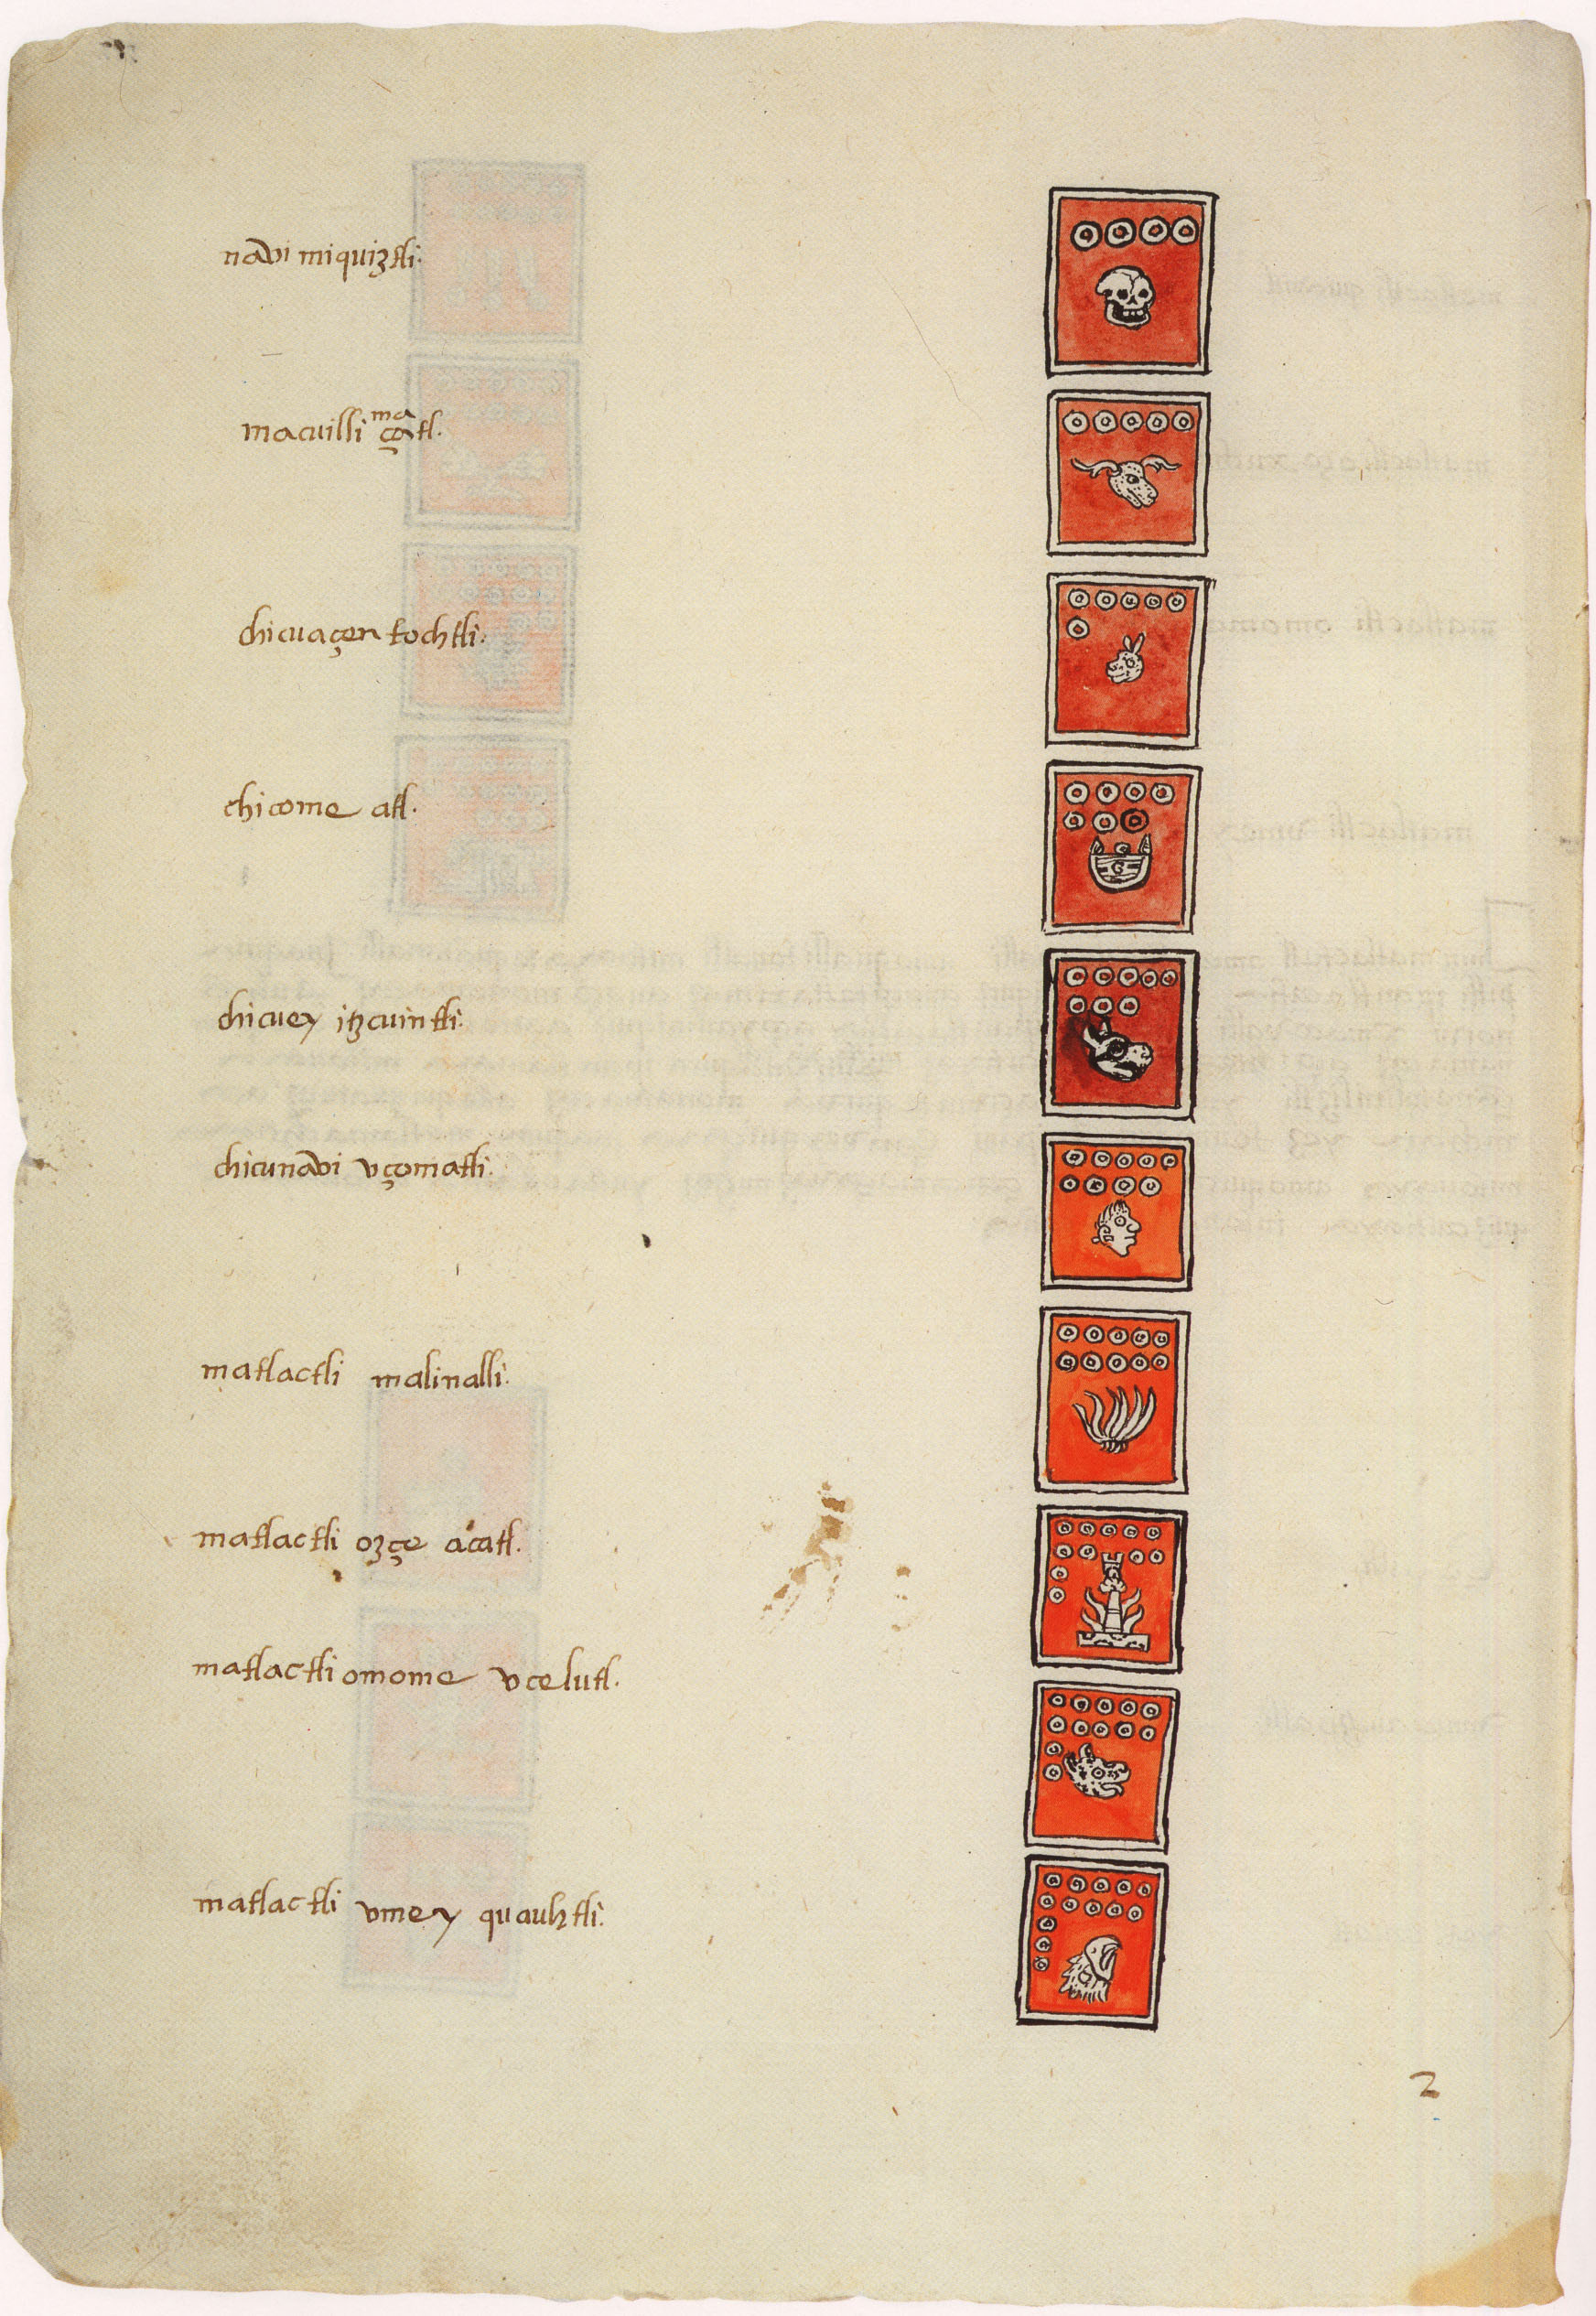 navi miquiztli.
macuilli maçatl.
chicuaçen tochtli.
chicome atl.
chicuey itzcuintli.
chicunavi vçomatli.
matlactli malinalli.
matlactli ozçe acatl.
matlactli omome vcelutl.
matlactli vmey quauhtli.
2